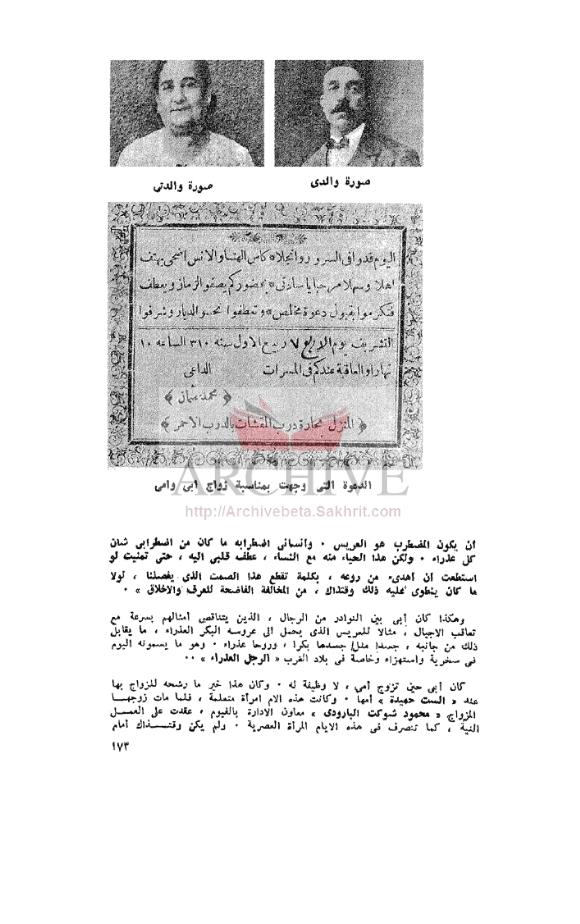 صورة والدى
صورة والدتى
اليوم قد وافى السرور وانجلا * كاس الهنا والانس اضحى يهتف
اهلا وسهلا مرحبا يا سادتى * بحضوركم يصفو الزمان ويعطف
فتكرموا بقبول دعوة مخلص * وتعطفوا نحو الديار وشرفوا
التشريف يوم الاربع ٧ ربيع الاول سنه ٣١٠ الساعه ١٠
نهارا والعاقبة عندكم فى المسرات الداعى
﴿ محمد عثمان ﴾
﴿ المنزل بحارة درب بالدرب الاحمر ﴾
ARCHIVE
الدعوة التى وجهت بمناسبة زواج ابى وامى
http://Archivebeta.Sakhrit.com
ان يكون المضطرب هو العريس . وأنسانى اضطرابه ما كان من اضطرابى شان
كل عذراء . ولكن هذا الحياء منه مع النساء ، عطف قلبى اليه ، حتى تمنيت لو
استطعت ان أهدىء من روعه ، بكلمة تقطع هذا الصمت الذى يفصلنا ، لولا
ما كان ينطوى عليه ذلك وقتذاك ، من المخالفة الفاضحة للعرف والاخلاق » .
وهكذا كان أبى بين النوادر من الرجال ، الذين يتناقص أمثالهم بسرعة مع
تعاقب الاجيال ، مثالا للعريس الذى يحمل الى عروسه البكر العذراء ، ما يقابل
ذلك من جانبه ، جسدا مثل جسدها بكرا ، وروحا عذراء . وهو ما يسمونه اليوم
فى سخرية واستهزاء وخاصة فى بلاد الغرب « الرجل العذراء » . .
كان أبى حين تزوج أمى ، لا وظيفة له . وكان هذا خير ما رشحه للزواج بها
عند « الست حميدة » أمها . وكانت هذه الام امرأة متعلمة ، فلما مات زوجهـا
المزواج « محمود شوكت البارودى » معاون الادارة بالفيوم ، عقدت على العمـل
النية ، كما تتصرف فى هذه الايام المرأة العصرية . ولم يكن وقتـــذاك أمام
١٧٣